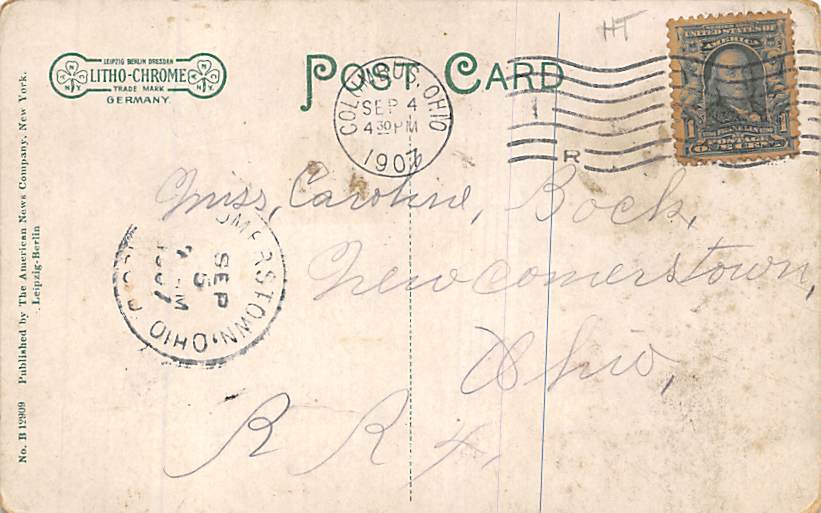 HT
LEIPZIG BERLIN DRESDEN
LITHO-CHROME
TRADE MARK
GERMANY.
N N
N.Y. N.Y.
POST CARD
COLUMBUS, OHIO
SEP 4
4 30 PM
1907
R
UNITED STATES OF
AMERICA
1 1
FRANKLIN
POSTAGE
ONE CENT
Miss, Caroline, Bock,
Newcomerstown,
Ohio,
R R 4,
OMERSTOWN, OHIO
SEP
5
M
1907
No. B 12909 Published by The American News Company, New York.
Leipzig-Berlin